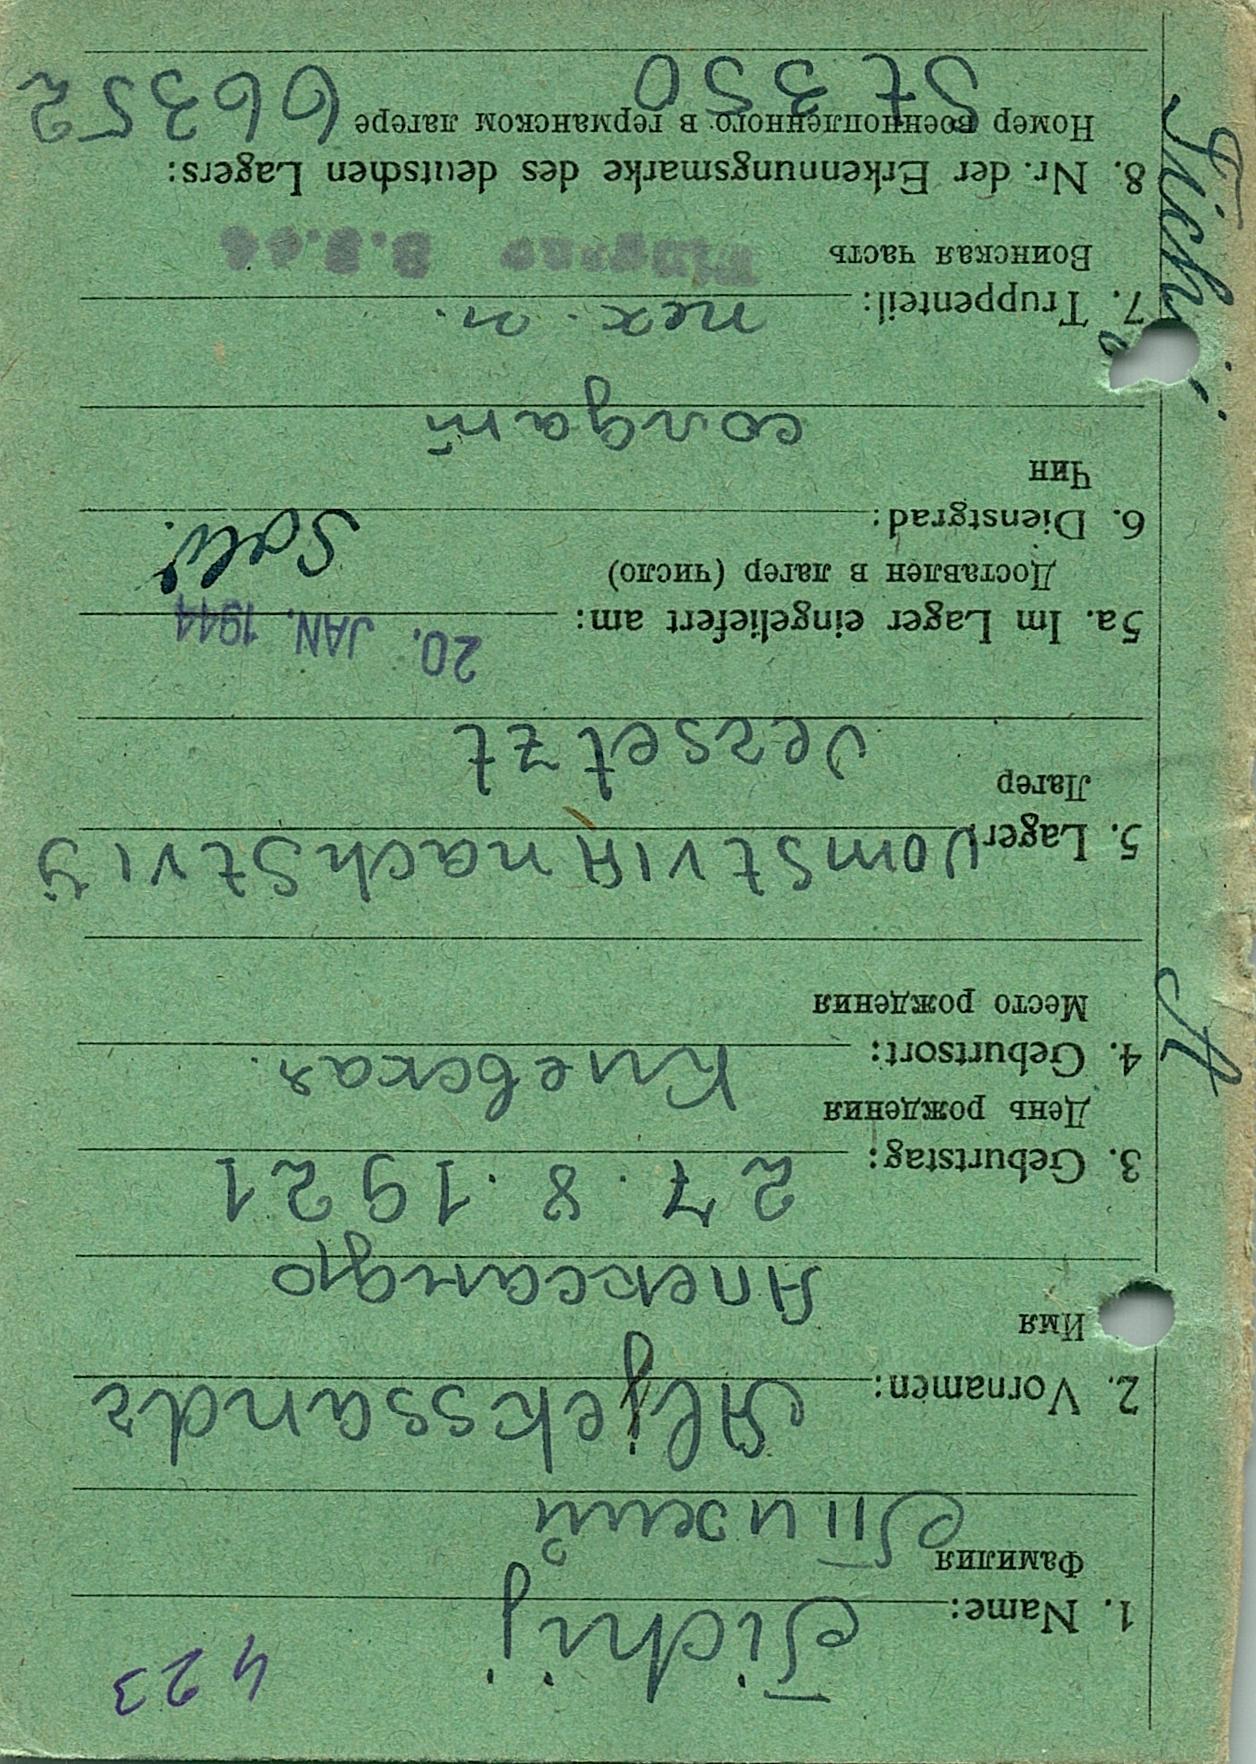 423
1. Name: Tichij
Фамилия Тихий
2. Vornamen: Aljekssandr
Имя
Александр
3. Geburtstag: 27.8.1921
День рождения
4. Geburtsort: Киевская.
Место рождения
5. Lager vom St VI A nach St VI G
Лагер
versetzt
5a. Im Lager eingeliefert am: 20. JAN. 1944
Доставлен в лагер (число)
6. Dienstgrad: Sold.
Чин
солдат
7. Truppenteil: пех. п.
Воинская часть
8. Nr. der Erkennungsmarke des deutschen Lagers:
Номер военнопленного в германском лагере 66352
St 350
Tichij
A